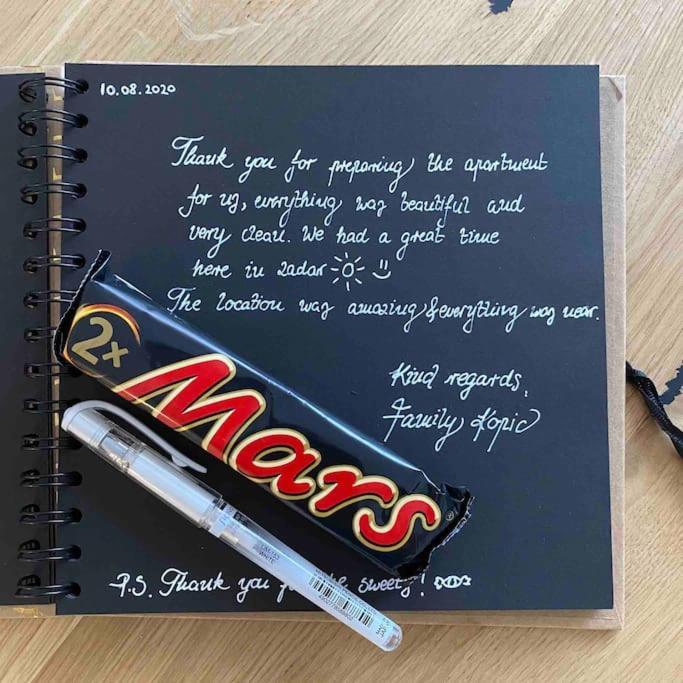 10.08.2020
Thank you for preparing the apartment
for us, everything was beautiful and
very clean. We had a great time
here in Zadar
The location was amazing & everything was near.
Kind regards,
Family Kopic
2x
Mars
P.S. Thank you the sweets!
WHITE